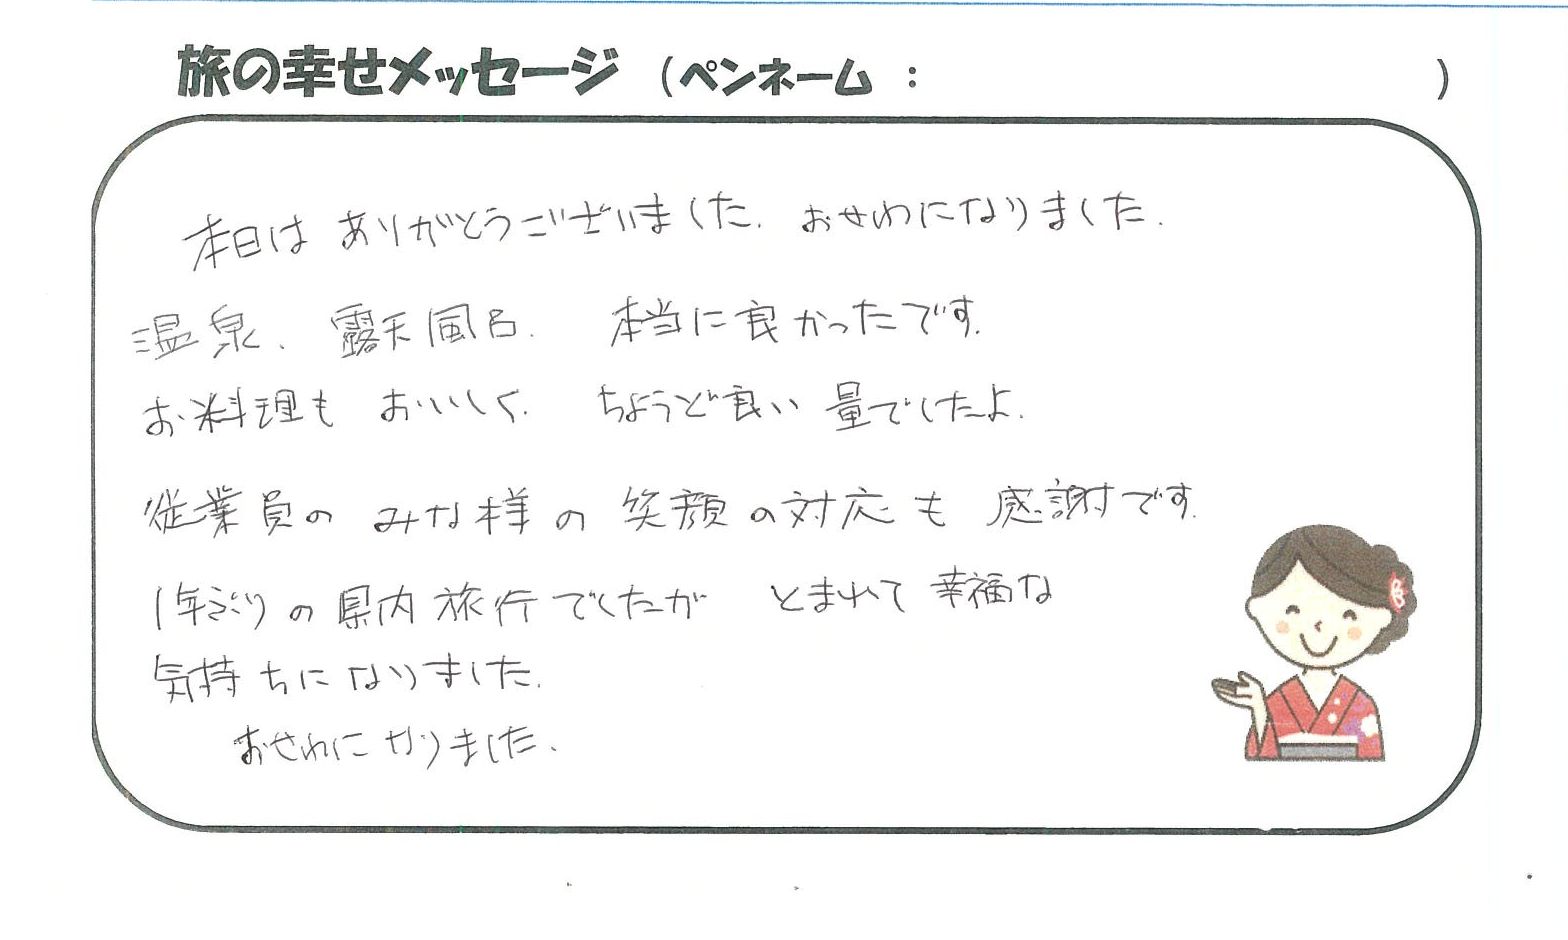 旅の幸せメッセージ （ペンネーム ： ）
本日は ありがとうございました. おせわになりました.
温泉、露天風呂. 本当に良かったです.
お料理も おいしく. ちょうど良い 量でしたよ.
従業員の みな様の 笑顔の対応も 感謝です.
1年ぶりの県内旅行でしたが とまれて 幸福な
気持ちになりました.
おせわになりました.